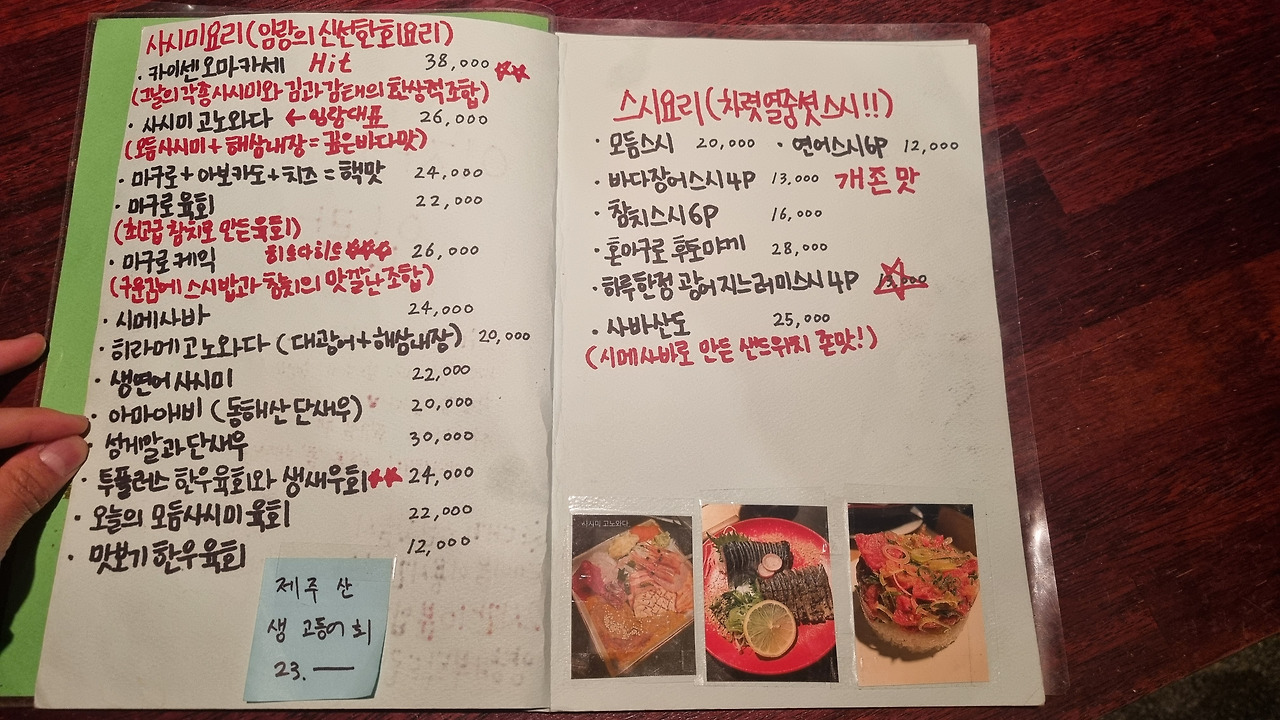 사시미요리(임랑의 신선한회요리)
· 카이센오마카세 Hit 38,000
(그날의 각종사시미와 김과감태의 환상적조합)
· 사시미 고노와다 ← 임랑대표 26,000
(모듬사시미 + 해삼내장 = 깊은바다맛)
· 마구로 + 아보카도 + 치즈 = 핵맛 24,000
· 마구로 육회 22,000
(최고급 참치로 만든육회)
· 마구로케익 히트다히트 26,000
(구운김에 스시밥과 참치의 맛깔난조합)
· 시메사바 24,000
· 히라메고노와다 (대광어+해삼내장) 20,000
· 생연어사시미 22,000
· 아마에비 (동해산단새우) 20,000
· 성게알과 단새우 30,000
· 투플러스 한우육회와 생새우회 24,000
· 오늘의 모듬사시미 육회 22,000
· 맛보기 한우육회 12,000
제주 산
생 고등어 회
23. —
스시요리(차렷열중쉿스시!!)
· 모듬스시 20,000 · 연어스시6P 12,000
· 바다장어스시4P 13,000 개존맛
· 참치스시6P 16,000
· 혼마구로 후토마끼 28,000
· 하루한정 광어지느러미스시 4P
· 사바산도 25,000
(시메사바로 만든 샌드위치 존맛!)
사시미 고노와다